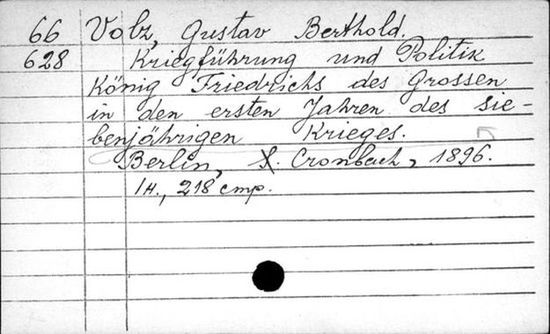 66 Volz, Gustav Berthold.
628 Kriegführung und Politik
König Friedrichs des Grossen
in den ersten Jahren des sie-
benjährigen Krieges.
Berlin, S. Cronbach, 1896.
1 н., 218 стр.